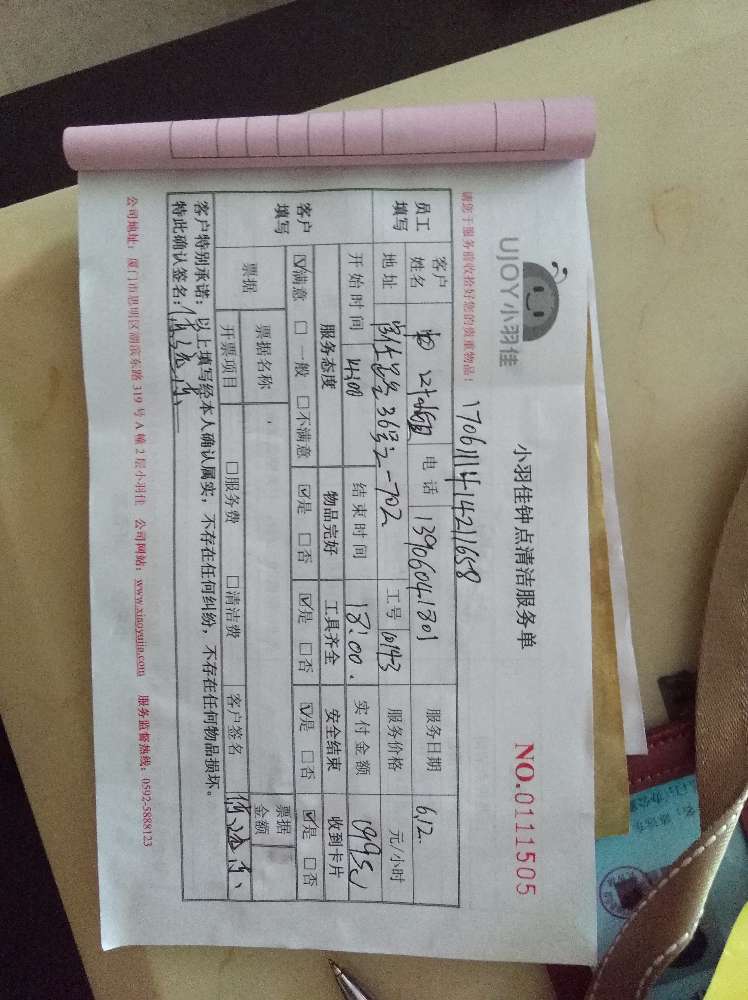 UJOY小羽佳
小羽佳钟点清洁服务单
NO.0111505
请您于服务前收拾好您的贵重物品!
员工填写
客户姓名
电话 13906041801
服务日期 6.12.
地址 36号之一702
工号 10143
服务价格 元/小时
开始时间 14:00
结束时间 18:00.
实付金额
客户填写
服务态度 物品完好 工具齐全 安全结束 收到卡片
☑满意 □一般 □不满意 ☑是 □否 ☑是 □否 ☑是 □否 ☑是 □否
票据
票据名称
票据金额
开票项目 □服务费 □清洁费 客户签名
客户特别承诺:以上填写经本人确认属实,不存在任何纠纷,不存在任何物品损坏。
特此确认签名:
公司地址:厦门市思明区湖滨东路319号A幢2层小羽佳 公司网站:www.xiaoyujia.com 服务监督热线:0592-5888123